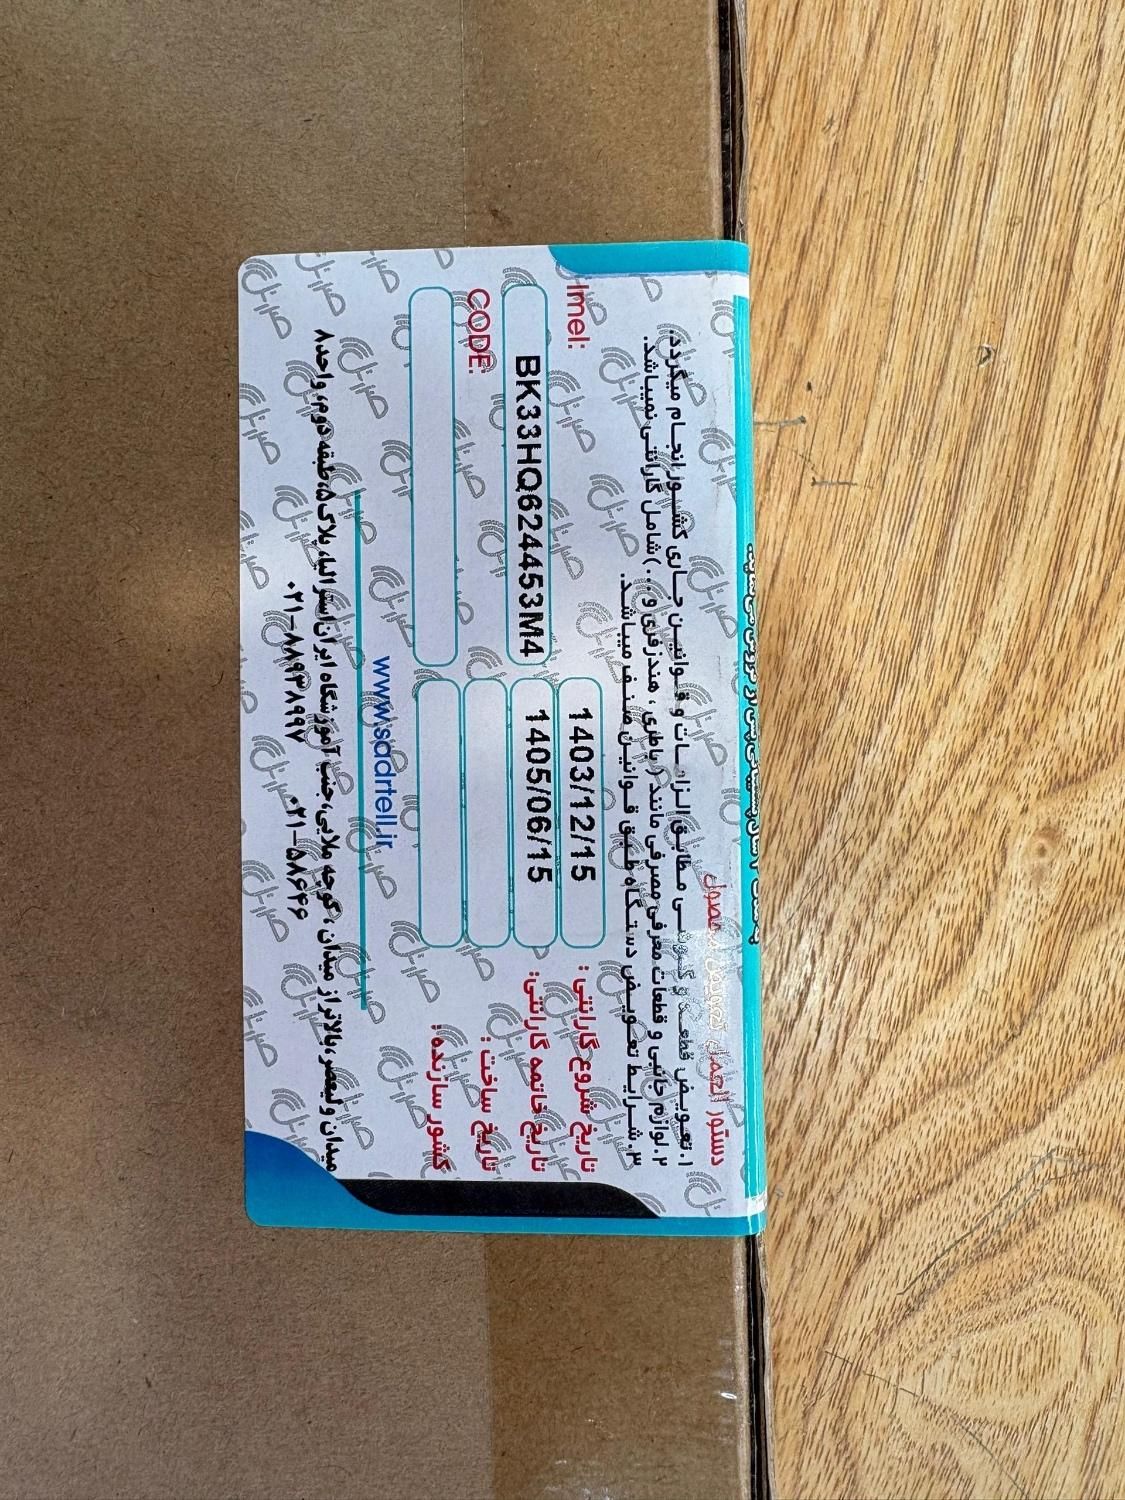 دستور العمل تعویض محصول
۱.تعویض قطعه و گوشی مطابق الزامات و قوانین جاری کشور انجام میگردد.
۲.لوازم جانبی و قطعات معرفی مصرفی مانند ( باطری ، هندزفری و ...)شامل گارانتی نمیباشد.
۳.شرایط تعویض دستگاه طبق قوانین صنف میباشد.
Imei:
BK33HQ624453M4
CODE:
تاریخ شروع گارانتی : 1403/12/15
تاریخ خاتمه گارانتی: 1405/06/15
تاریخ ساخت :
کشور سازنده :
www.sadrtell.ir
میدان ولیعصر،بالاتراز میدان ، کوچه ملایی،جنب آموزشگاه ایران استرالیا، پلاک۵،طبقه دوم، واحد۸
۰۲۱-۵۸۶۴۶ ۰۲۱-۸۸۹۳۸۹۹۷
صدرتل